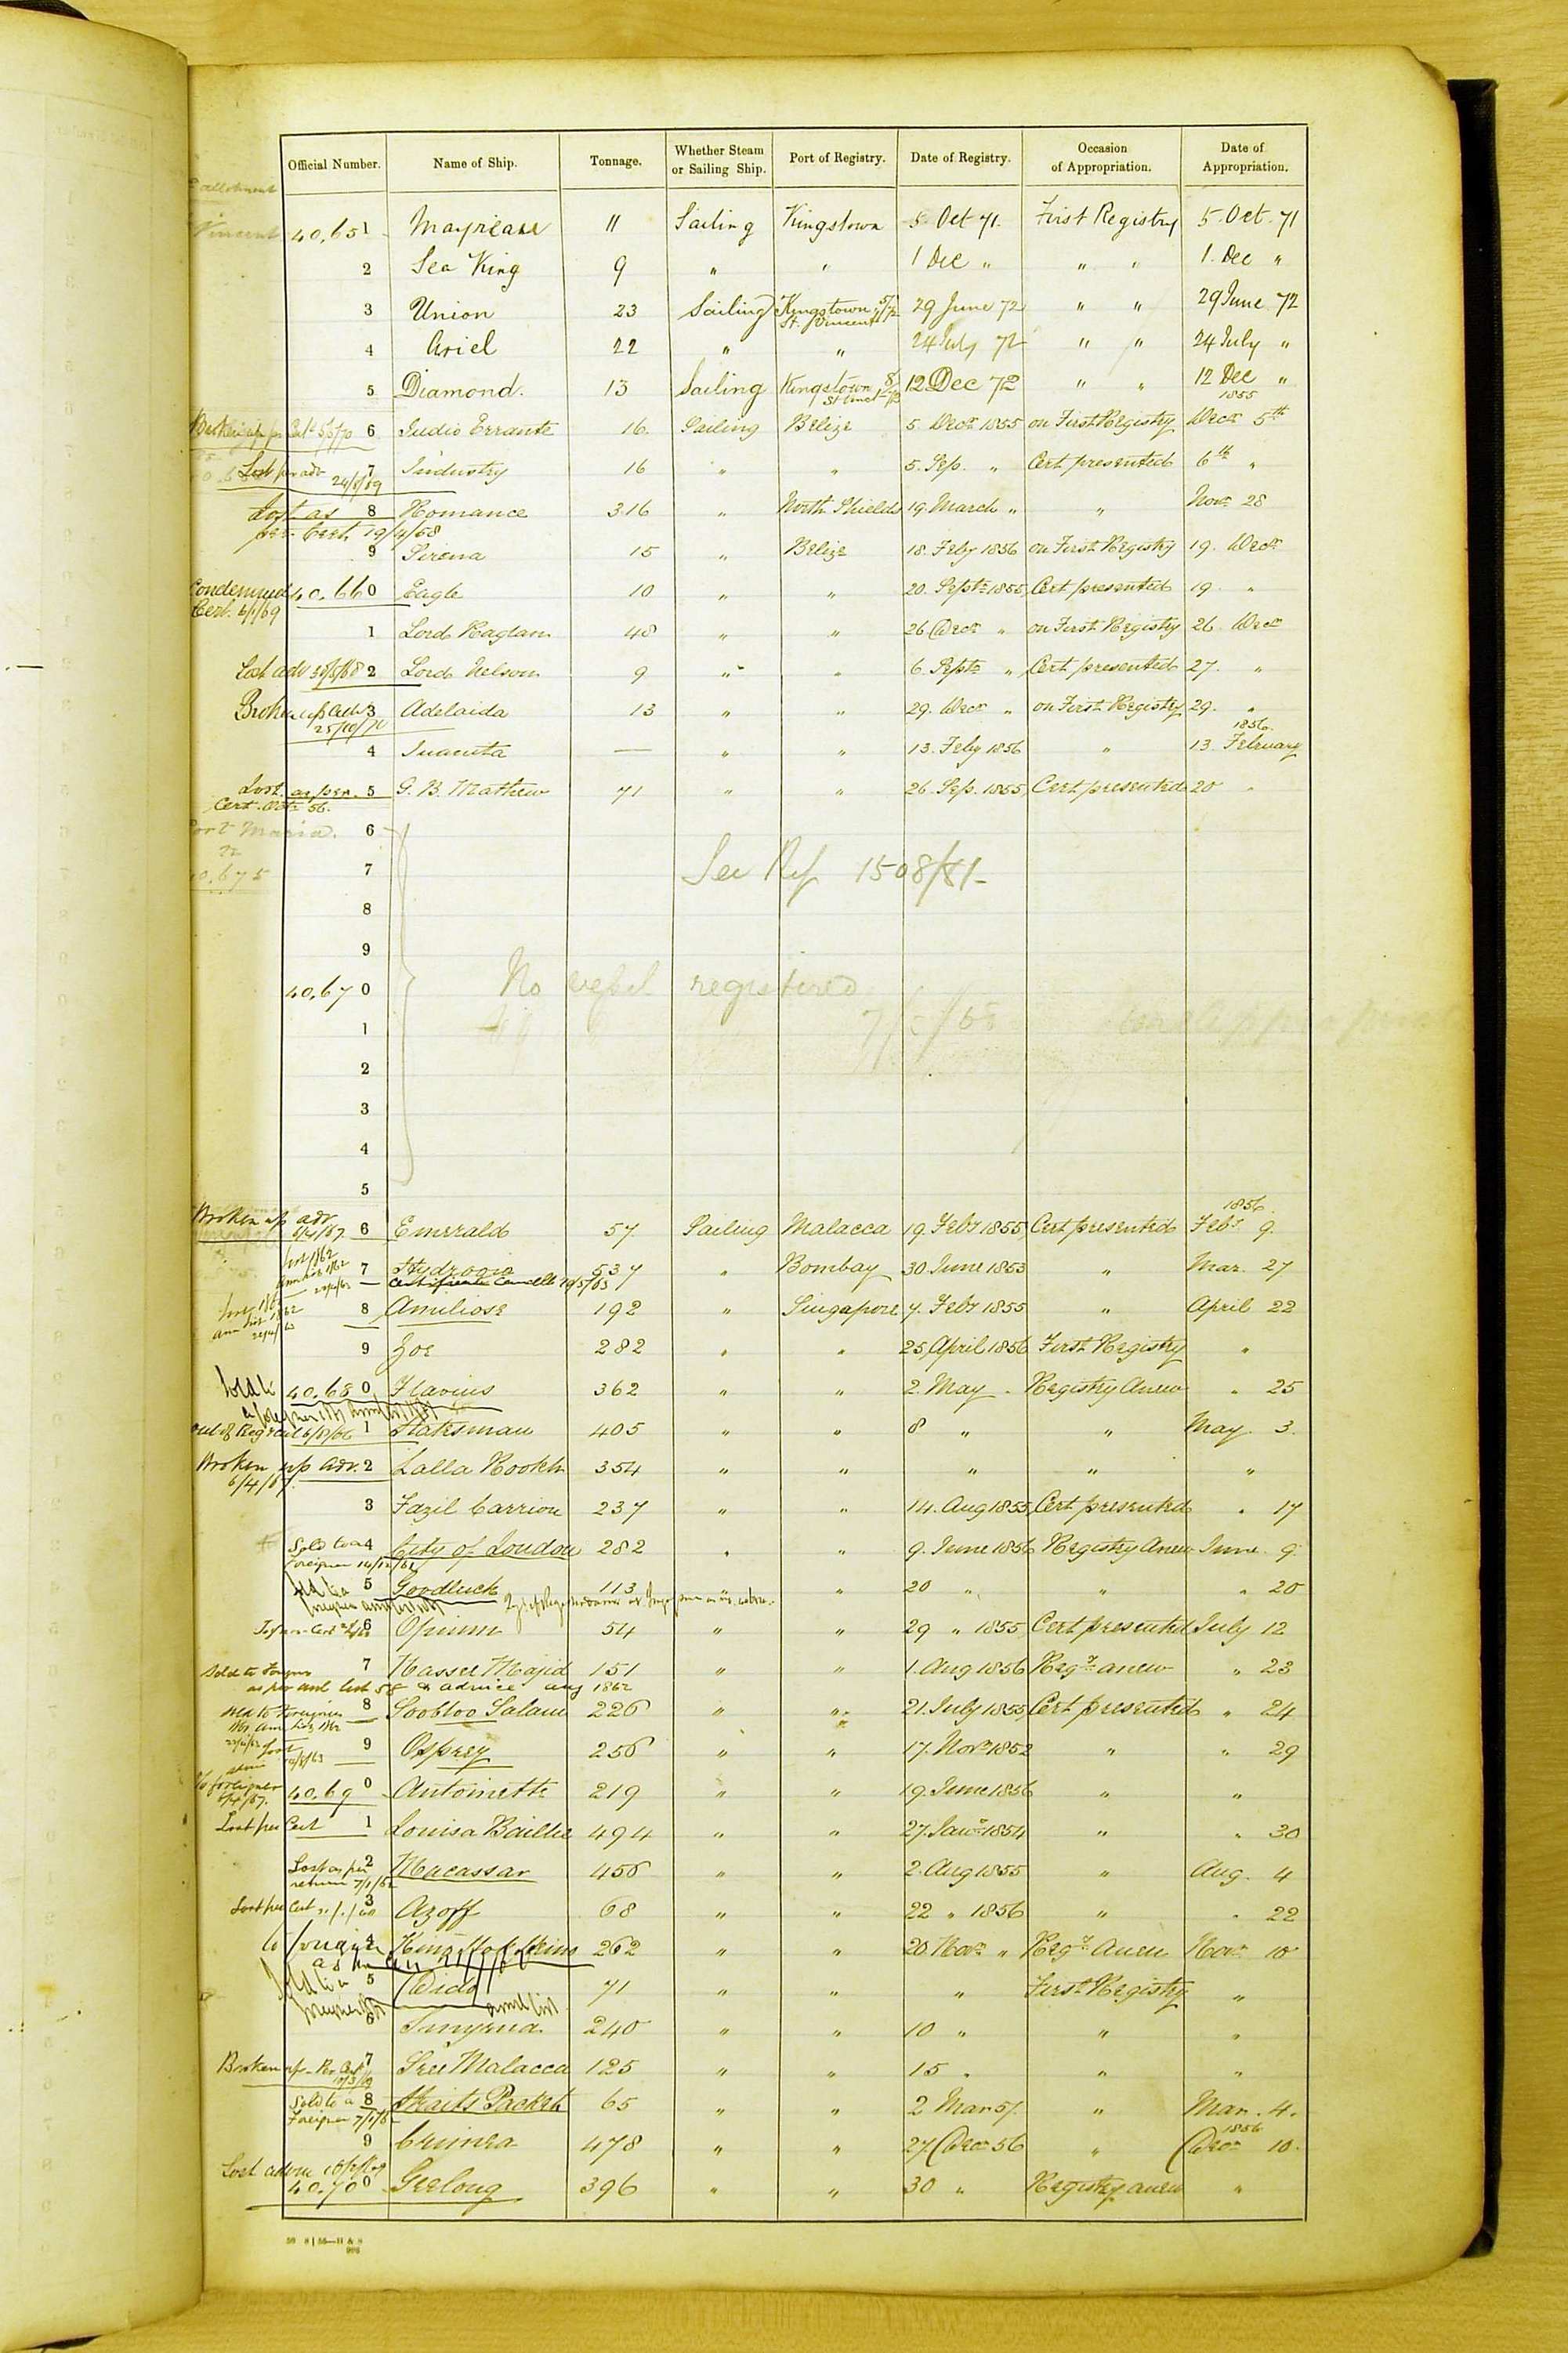 Official Number. Name of Ship. Tonnage. Whether Steam or Sailing Ship. Port of Registry. Date of Registry. Occasion of Appropriation. Date of Appropriation.
Vincent 40,651 Mayreau 11 Sailing Kingstown 5 Oct 71. First Registry 5. Oct. 71
2 Sea King 9 " " 1 Dec " " " 1. Dec "
3 Union 23 Sailing Kingstown St. Vincent 5/72 29 June 72 " " 29 June 72
4 Ariel 22 " " 24 July 72 " " 24 July "
5 Diamond. 13 Sailing Kingstown 12 Dec 72 " " 12 Dec "
1855
6 Judio Errante 16. Sailing Belize 5. Decr 1855 on First Registry Decr 5th
Lost per adv 24/5/69 7 Industry 16 " " 5. Sep. " Cert presented 6th "
Lost as per Cert. 19/4/68 8 Romance 316 " North Shields 19. March " " Novr 28
9 Sirena 15 " Belize 18. Feby 1856 on First Registry 19. Decr
Condemned Cert. 6/1/69 40.660 Eagle 10 " " 20. Septr 1855 Cert presented 19. "
1 Lord Raglan 48 " " 26 Decr " on First Registry 26. Decr
Lost adv 2 Lord Nelson 9 " " 6. Septr " Cert presented 27. "
Broken up Cert 25/10/70 3 Adelaida 13 " " 29. Decr " on First Registry 29. "
1856.
4 Juanita — " " 13. Feby 1856 " 13. February
Lost. as per. Cert. Octr 56. 5 G. B. Mathew 71 " " 26. Sep. 1855 Cert presented 20 "
Port Maria. 6
7 See Ref 1508/81
40,675
8
9
40,670 No vessel registered
1
2
3
4
5
1856.
Broken up adv 6/4/67 6 Emerald 57 Sailing Malacca 19. Feby 1855 Cert presented Feby 9.
7 Hydroos 537 " Bombay 30 June 1853 " Mar. 27
Certificate Cancelled 19/5/63
8 Amiliose 192 " Singapore 7. Feby 1855 " April 22
9 Zoe 282 " " 25 April 1856 First Registry "
Sold to a foreigner 40.680 Flavius 362 " " 2. May " Registry Anew " 25
1 Statesman 405 " " 8 " " May. 3.
Broken up Adv. 6/4/67 2 Lalla Rookh 354 " " " " "
3 Fazil Carrion 237 " " 14. Aug 1855 Cert presented " 17
Sold to a Foreigner 4 City of London 282 " " 9. June 1856 Registry Anew June. 9
Sold to a foreigner 5 Goodluck 113 " " 20 " " " 20
6 Opium 54 " " 29 " 1855 Cert presented July 12
Sold to Foreigner 7 Nasser Majid 151 " " 1. Aug 1856 Regy anew " 23
as per anl list 58 & advice aug 1862
sold to Foreigner 8 Soobloo Salam 226 " " 21. July 1855 Cert presented " 24
9 Osprey 256 " " 17. Novr 1852 " " 29
To foreigner 40.690 Antoinette 219 " " 19. June 1856 " "
Lost per Cert 1 Louisa Baillie 494 " " 27. Jany 1854 " " 30
Lost as per return 2 Macassar 456 " " 2. Aug 1855 " Aug. 4
Lost per Cert 3 Azoff 68 " " 22 " 1856 " " 22
to foreigner 4 262 " " 20. Novr " Regy Anew Novr 10
Sold to a foreigner 5 Dido 71 " " " First Registry "
6 Smyrna. 240 " " 10 " " "
Broken up - Per Cert 7 Sree Malacca 125 " " 15 " " "
Sold to a Foreigner 8 Straits Packet 65 " " 2 Mar 57. " Mar. 4.
1856
9 Crimea 478 " " 27 Decr 56 " Decr 10.
Lost 40.700 Geelong 396 " " 30 " Registry anew "